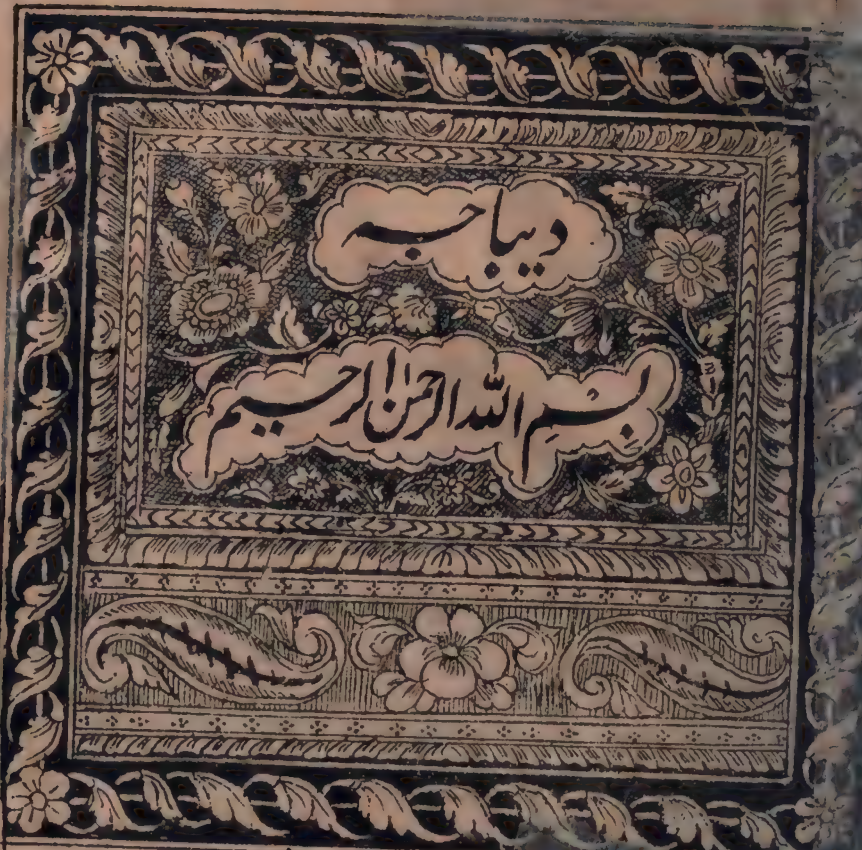 دیباچہ
بِسْمِ اللّٰہِ الرَّحْمٰنِ الرَّحِیْمِ